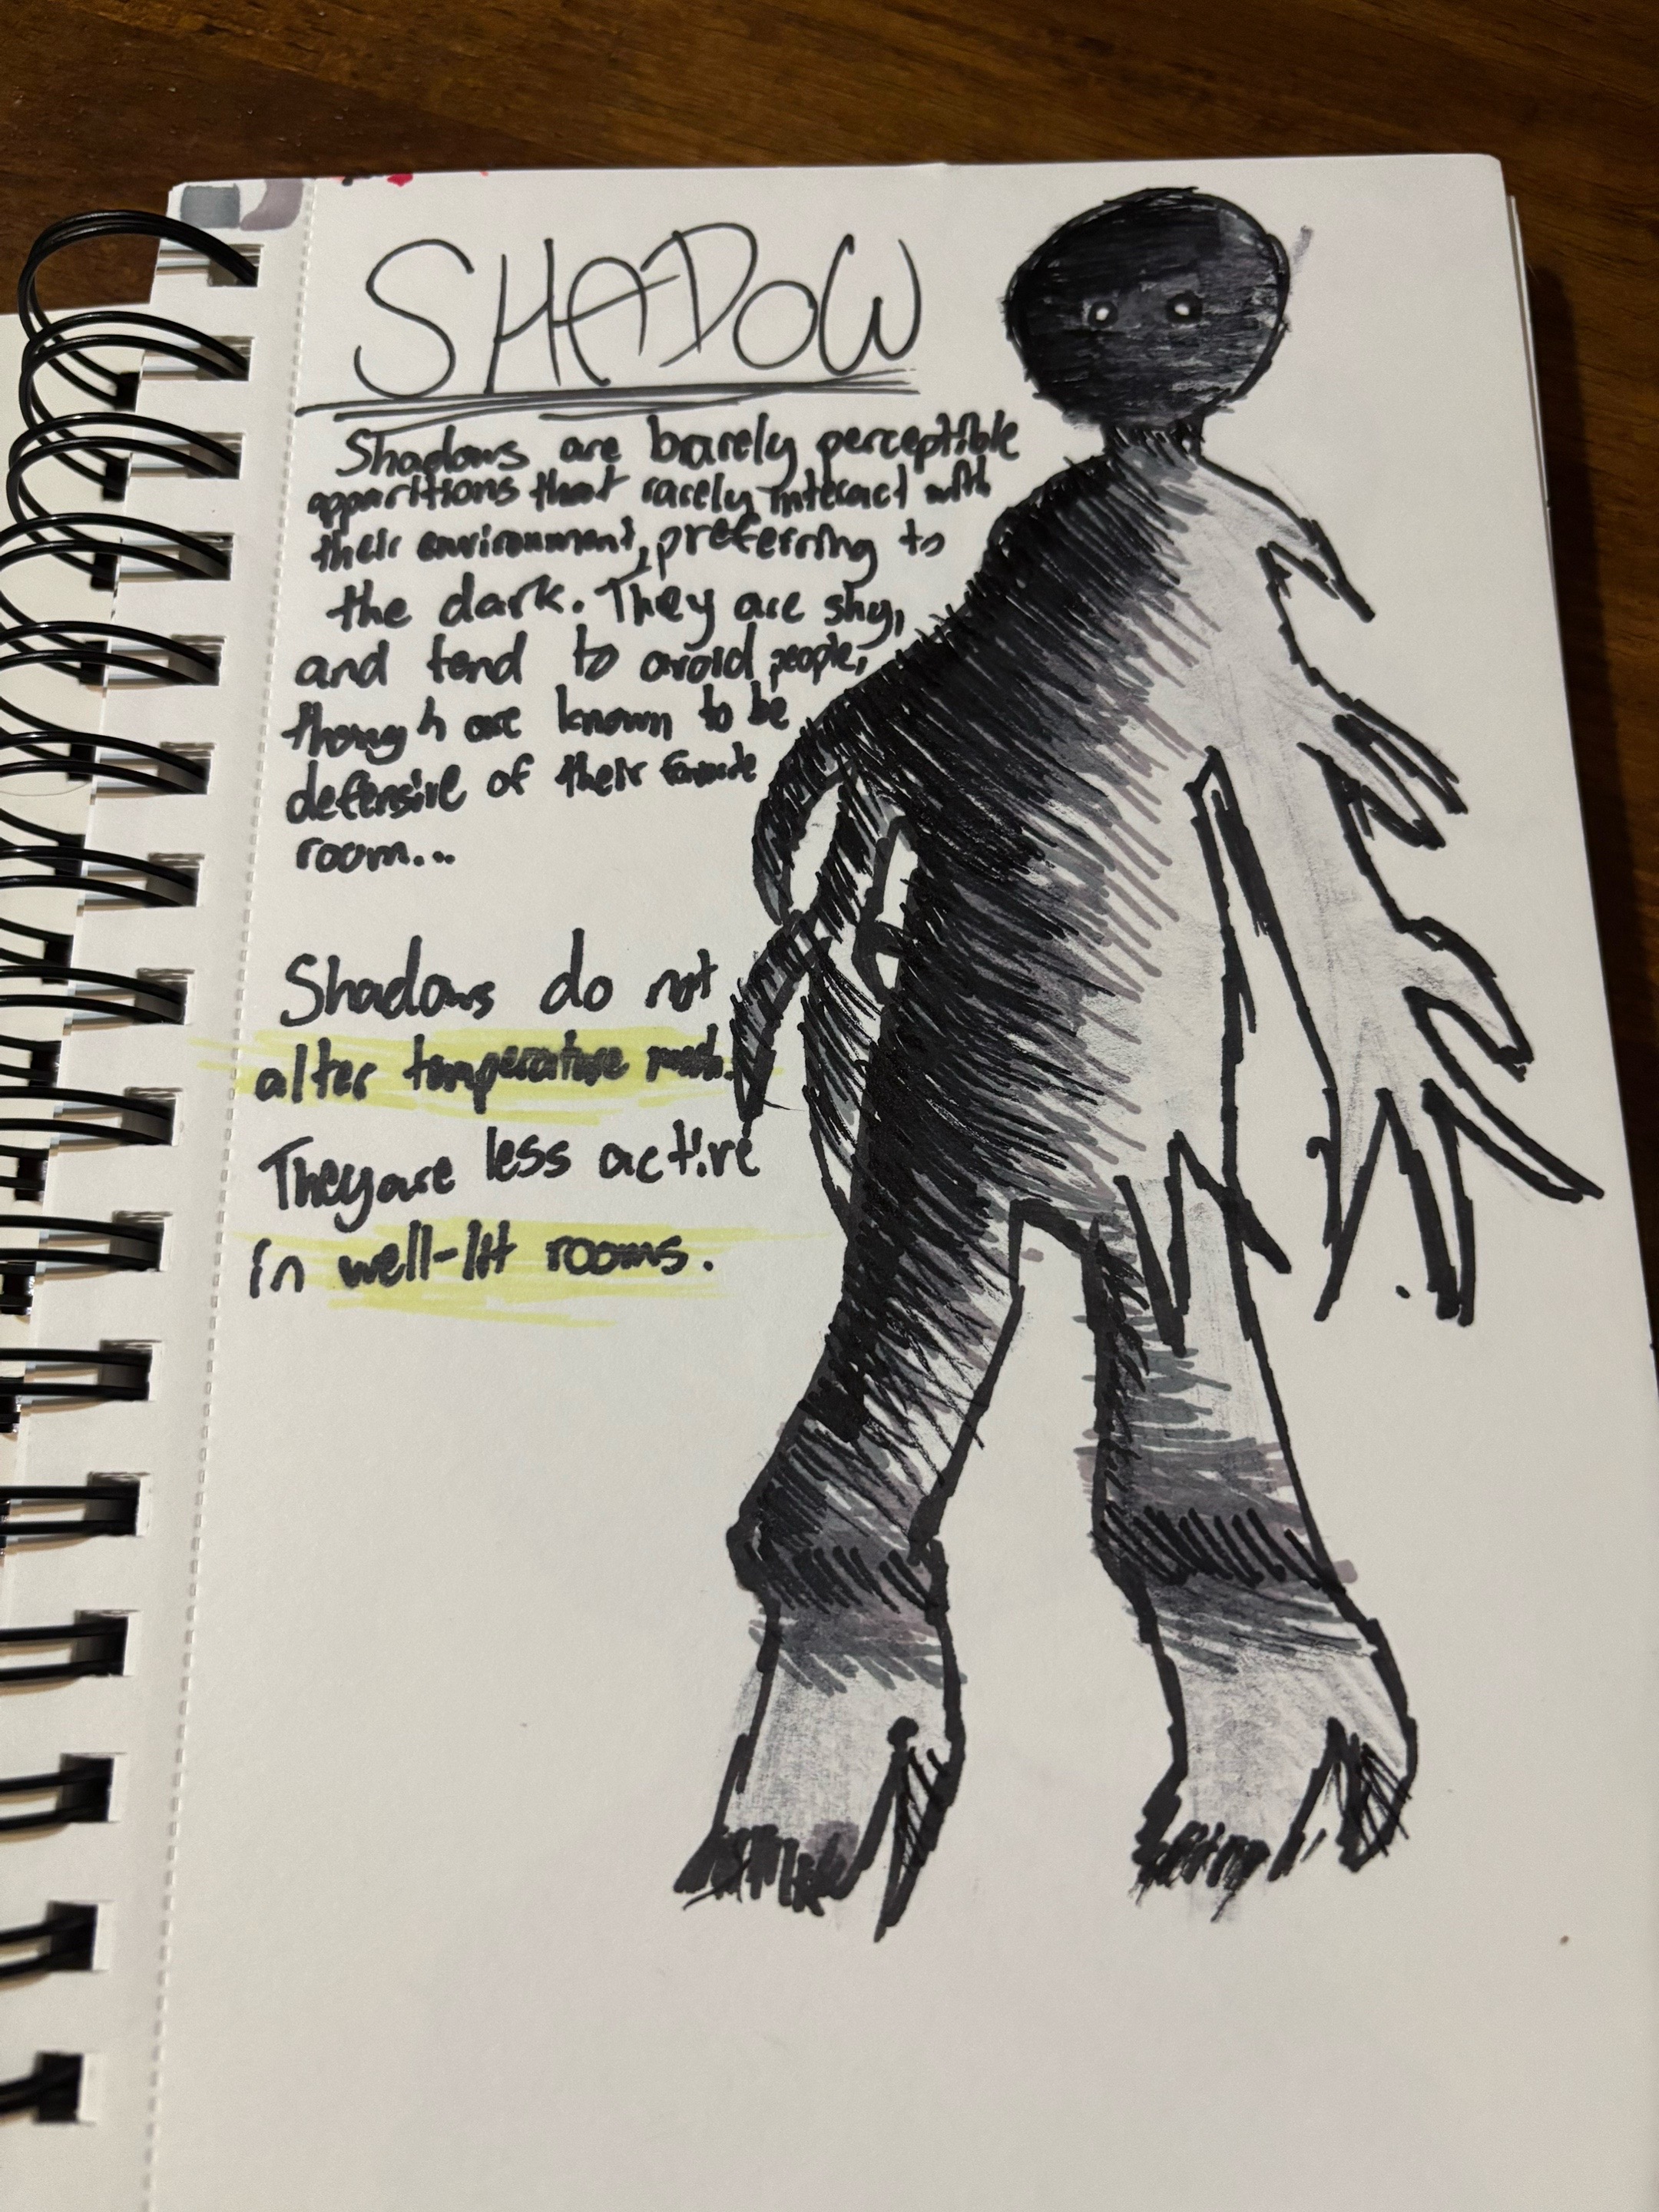 SHADOW
Shadows are barely perceptible
apparitions that rarely interact with
their environment, preferring to
the dark. They are shy,
and tend to avoid people,
though are known to be
defensive of their favorite
room...
Shadows do not
alter temperature much.
They are less active
in well-lit rooms.